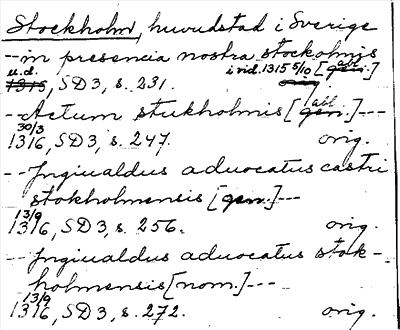 Stockholm, huvudstad i Sverige
--in presencia nostra stockolmis
u.d. i vid. 1315 5/10 [abl.]
1315, SD 3, s. 231.
--Actum stukholmis [abl.]---
30/3
1316, SD 3, s. 247. orig.
--Jngiualdus aduocatus castri
stokholmensis [gen.]---
13/9
1316, SD 3, s. 256. orig.
--Jngiualdus aduocatus stok-
holmensis [nom.]---
13/9
1316, SD 3, s. 272. orig.